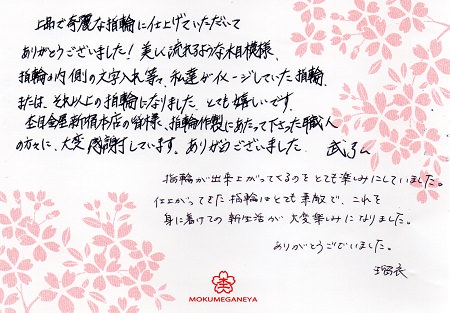 上品で綺麗な指輪に仕上げていただいて
ありがとうございました！美しく流れるような木目模様、
指輪の内側の文字入れ等々、私達がイメージしていた指輪、
または、それ以上の指輪になりました。とても嬉しいです。
杢目金屋新宿本店の皆様、指輪作製にあたって下さった職人
の方々に、大変感謝しています。ありがとうございました。
指輪が出来上がってくるのをとても楽しみにしていました。
仕上がってきた指輪はとても素敵で、これを
身に着けての新生活が大変楽しみになりました。
ありがとうございました。
MOKUMEGANEYA